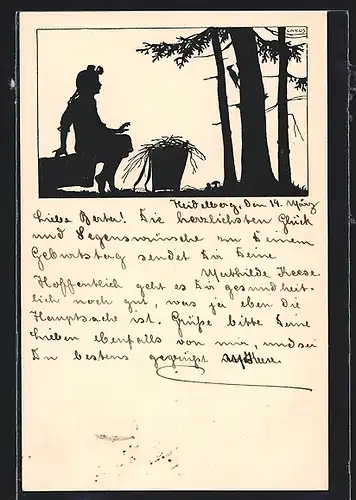 CARUS
Heidelberg, den 14. März
Liebe Berta! Die herzlichsten Glück
und Segenswünsche zu Deinem
Geburtstag sendet Dir Deine
Mathilde Keese.
Hoffentlich geht es Dir gesundheit-
lich noch gut, was ja eben die
Hauptsache ist. Grüße bitte Deine
Lieben ebenfalls von mir, und sei
Du bestens gegrüßt